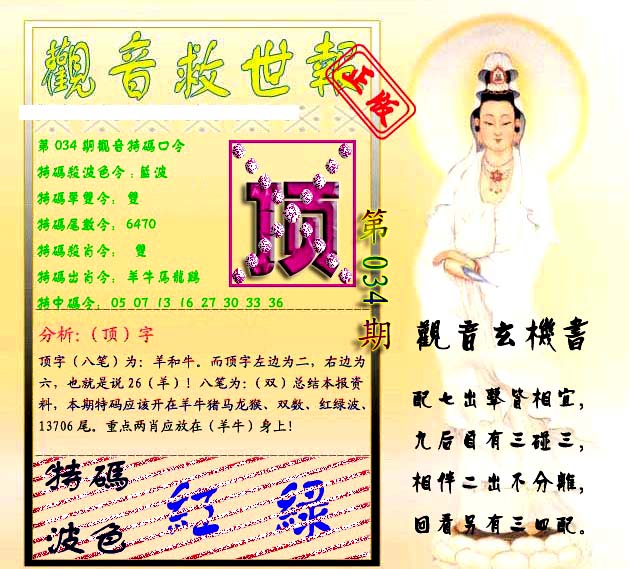 觀音救世報
正版
第 034 期觀音特碼口令
特碼殺波色令：藍波
特碼單雙令： 雙
特碼尾數令： 6470
特碼殺肖令： 雙
特碼出肖令： 羊牛馬龍鷄
特中碼令： 05 07 13 16 27 30 33 36
顶
第 034 期
分析：（顶）字
顶字（八笔）为：羊和牛。而顶字左边为二，右边为
六，也就是说 26（羊）！八笔为：（双）总结本报资
料，本期特码应该开在羊牛猪马龙猴、双数、红绿波、
13706 尾。重点两肖应放在（羊牛）身上！
特碼
波色
紅 綠
觀音玄機書
配七出擊皆相宜，
九后目有三碰三，
相伴二出不分離，
回看另有三四配。